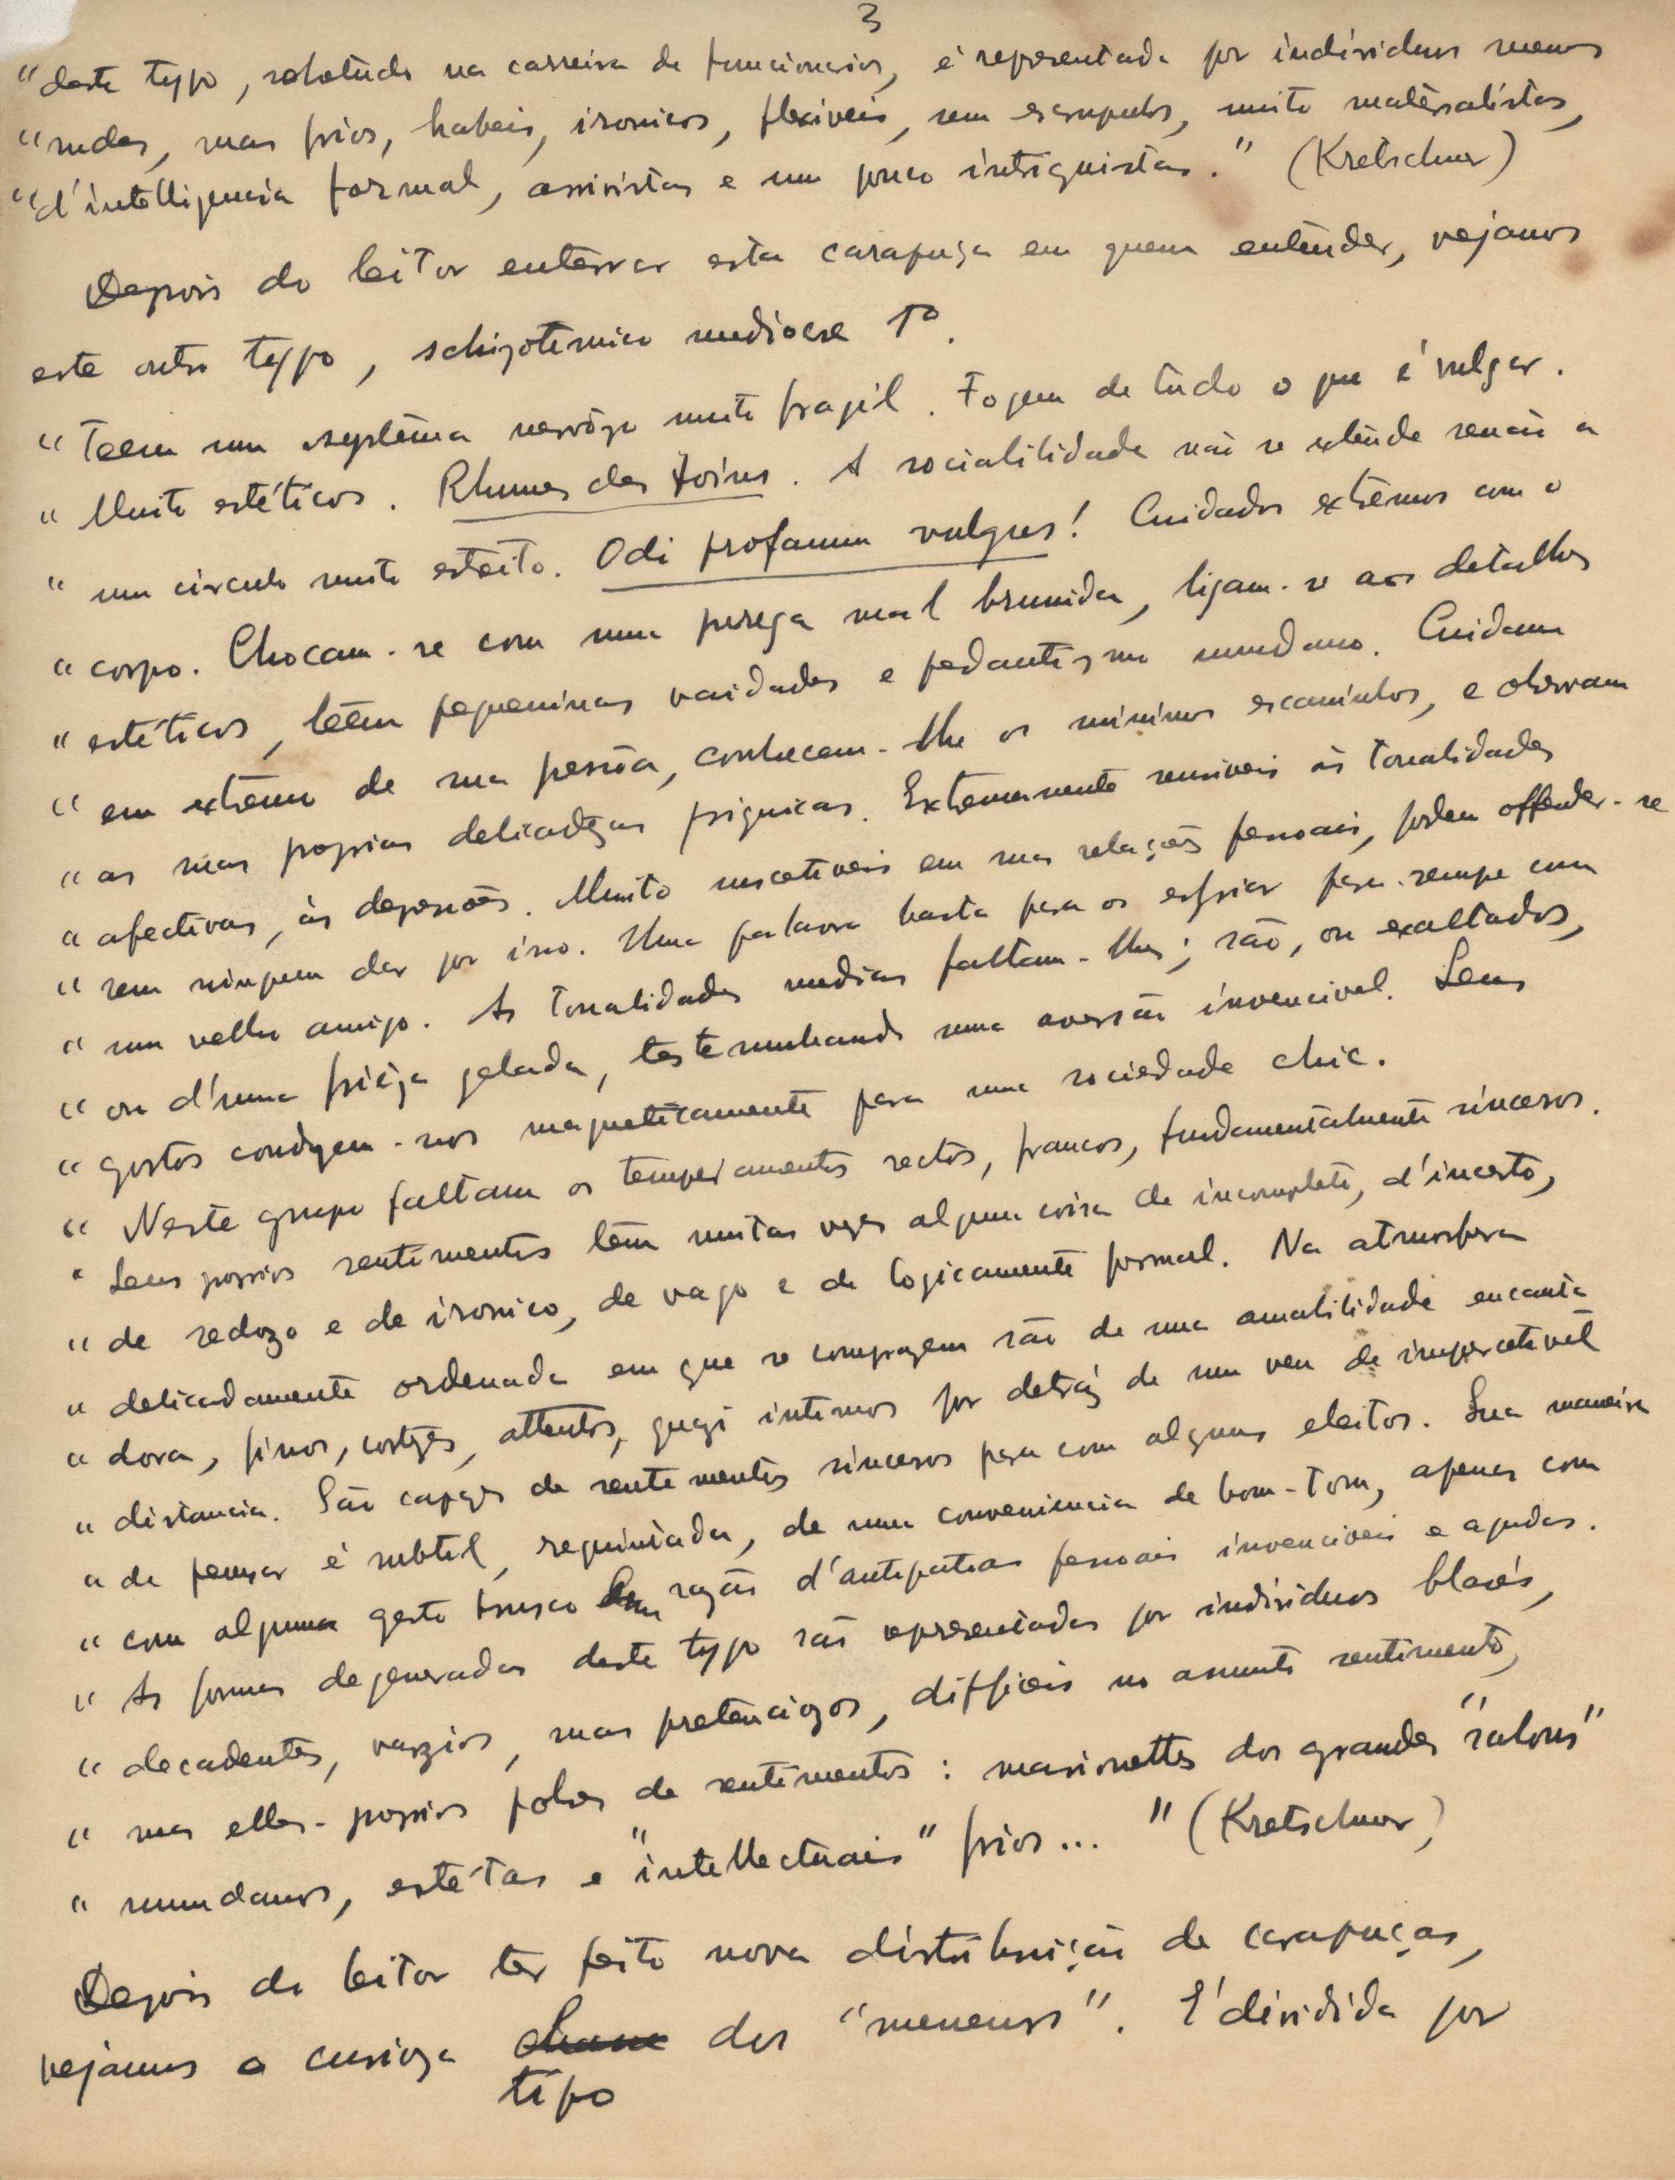 3
"deste typo, sobretudo na carreira de funcionarios, é representada por individuos menos
"rudes, mas frios, habeis, ironicos, flexiveis, sem escrupulos, muito materialistas,
"d'intelligencia formal, arrivistas e um pouco intriguistas." (Kretschmer)
Depois do leitor enterrar esta carapuça em quem entender, vejamos
este outro typo, schizotimico mediocre 1º.
"Teem um systêma nervôzo muito fragil. Fogem de tudo o que é vulgar.
"Muito estéticos. Rhumes des foins. A sociabilidade não se extende senão a
"um circulo muito estreito. Odi profanum vulgus! Cuidados extremos com o
"corpo. Chocam-se com uma prega mal brunida, ligam-se aos detalhes
"estéticos, têem pequeninas vaidades e pedantismo mundano. Cuidam
"em extremo de sua pessôa, conhecem-lhe os minimos escaninhos, e observam
"as suas proprias delicadezas psiquicas. Extremamente sensiveis ás tonalidades
"afectivas, ás depressões. Muito suscetiveis em suas relações pessoais, podem offender-se
"sem ninguem dar por isso. Uma palavra basta para os esfriar para sempre com
"um velho amigo. As tonalidades medias faltam-lhes; são, ou exaltados,
"ou d'uma frieza gelada, testemunhando uma aversão invencivel. Seus
"gostos conduzem-nos magneticamente para uma sociedade chic.
"Neste grupo faltam os temperamentos rectos, francos, fundamentalmente sinceros.
"Seus proprios sentimentos têm muitas vezes alguma coisa de incompleto, d'incerto,
"de redozo e de ironico, de vago e de logicamente formal. Na atmosfera
"delicadamente ordenada em que se comprazem são de uma amabilidade encanta-
"dora, finos, cortezes, attentos, quazi intimos por detráz de um veu de impercetivel
"distancia. São capazes de sentimentos sinceros para com alguns eleitos. Sua maneira
"de pensar é subtil, requintada, de uma conveniencia de bom-tom, apenas com
"com alguma gesto brusco em razão d'antipatias pessoais invenciveis e agudas.
"As formas degeneradas deste typo são apresentadas por individuos blasés,
"decadentes, vazios, mas pretenciozos, difficeis no assunto sentimento,
"mas elles-proprios pobres de sentimentos: marionettes dos grandes "salons"
"mundanos, estétas e "intellectuais" frios... " (Kretschmer)
Depois do leitor ter feito nova distribuição de carapuças,
vejamos o curioza dos "meneurs". É dividida por
tipo